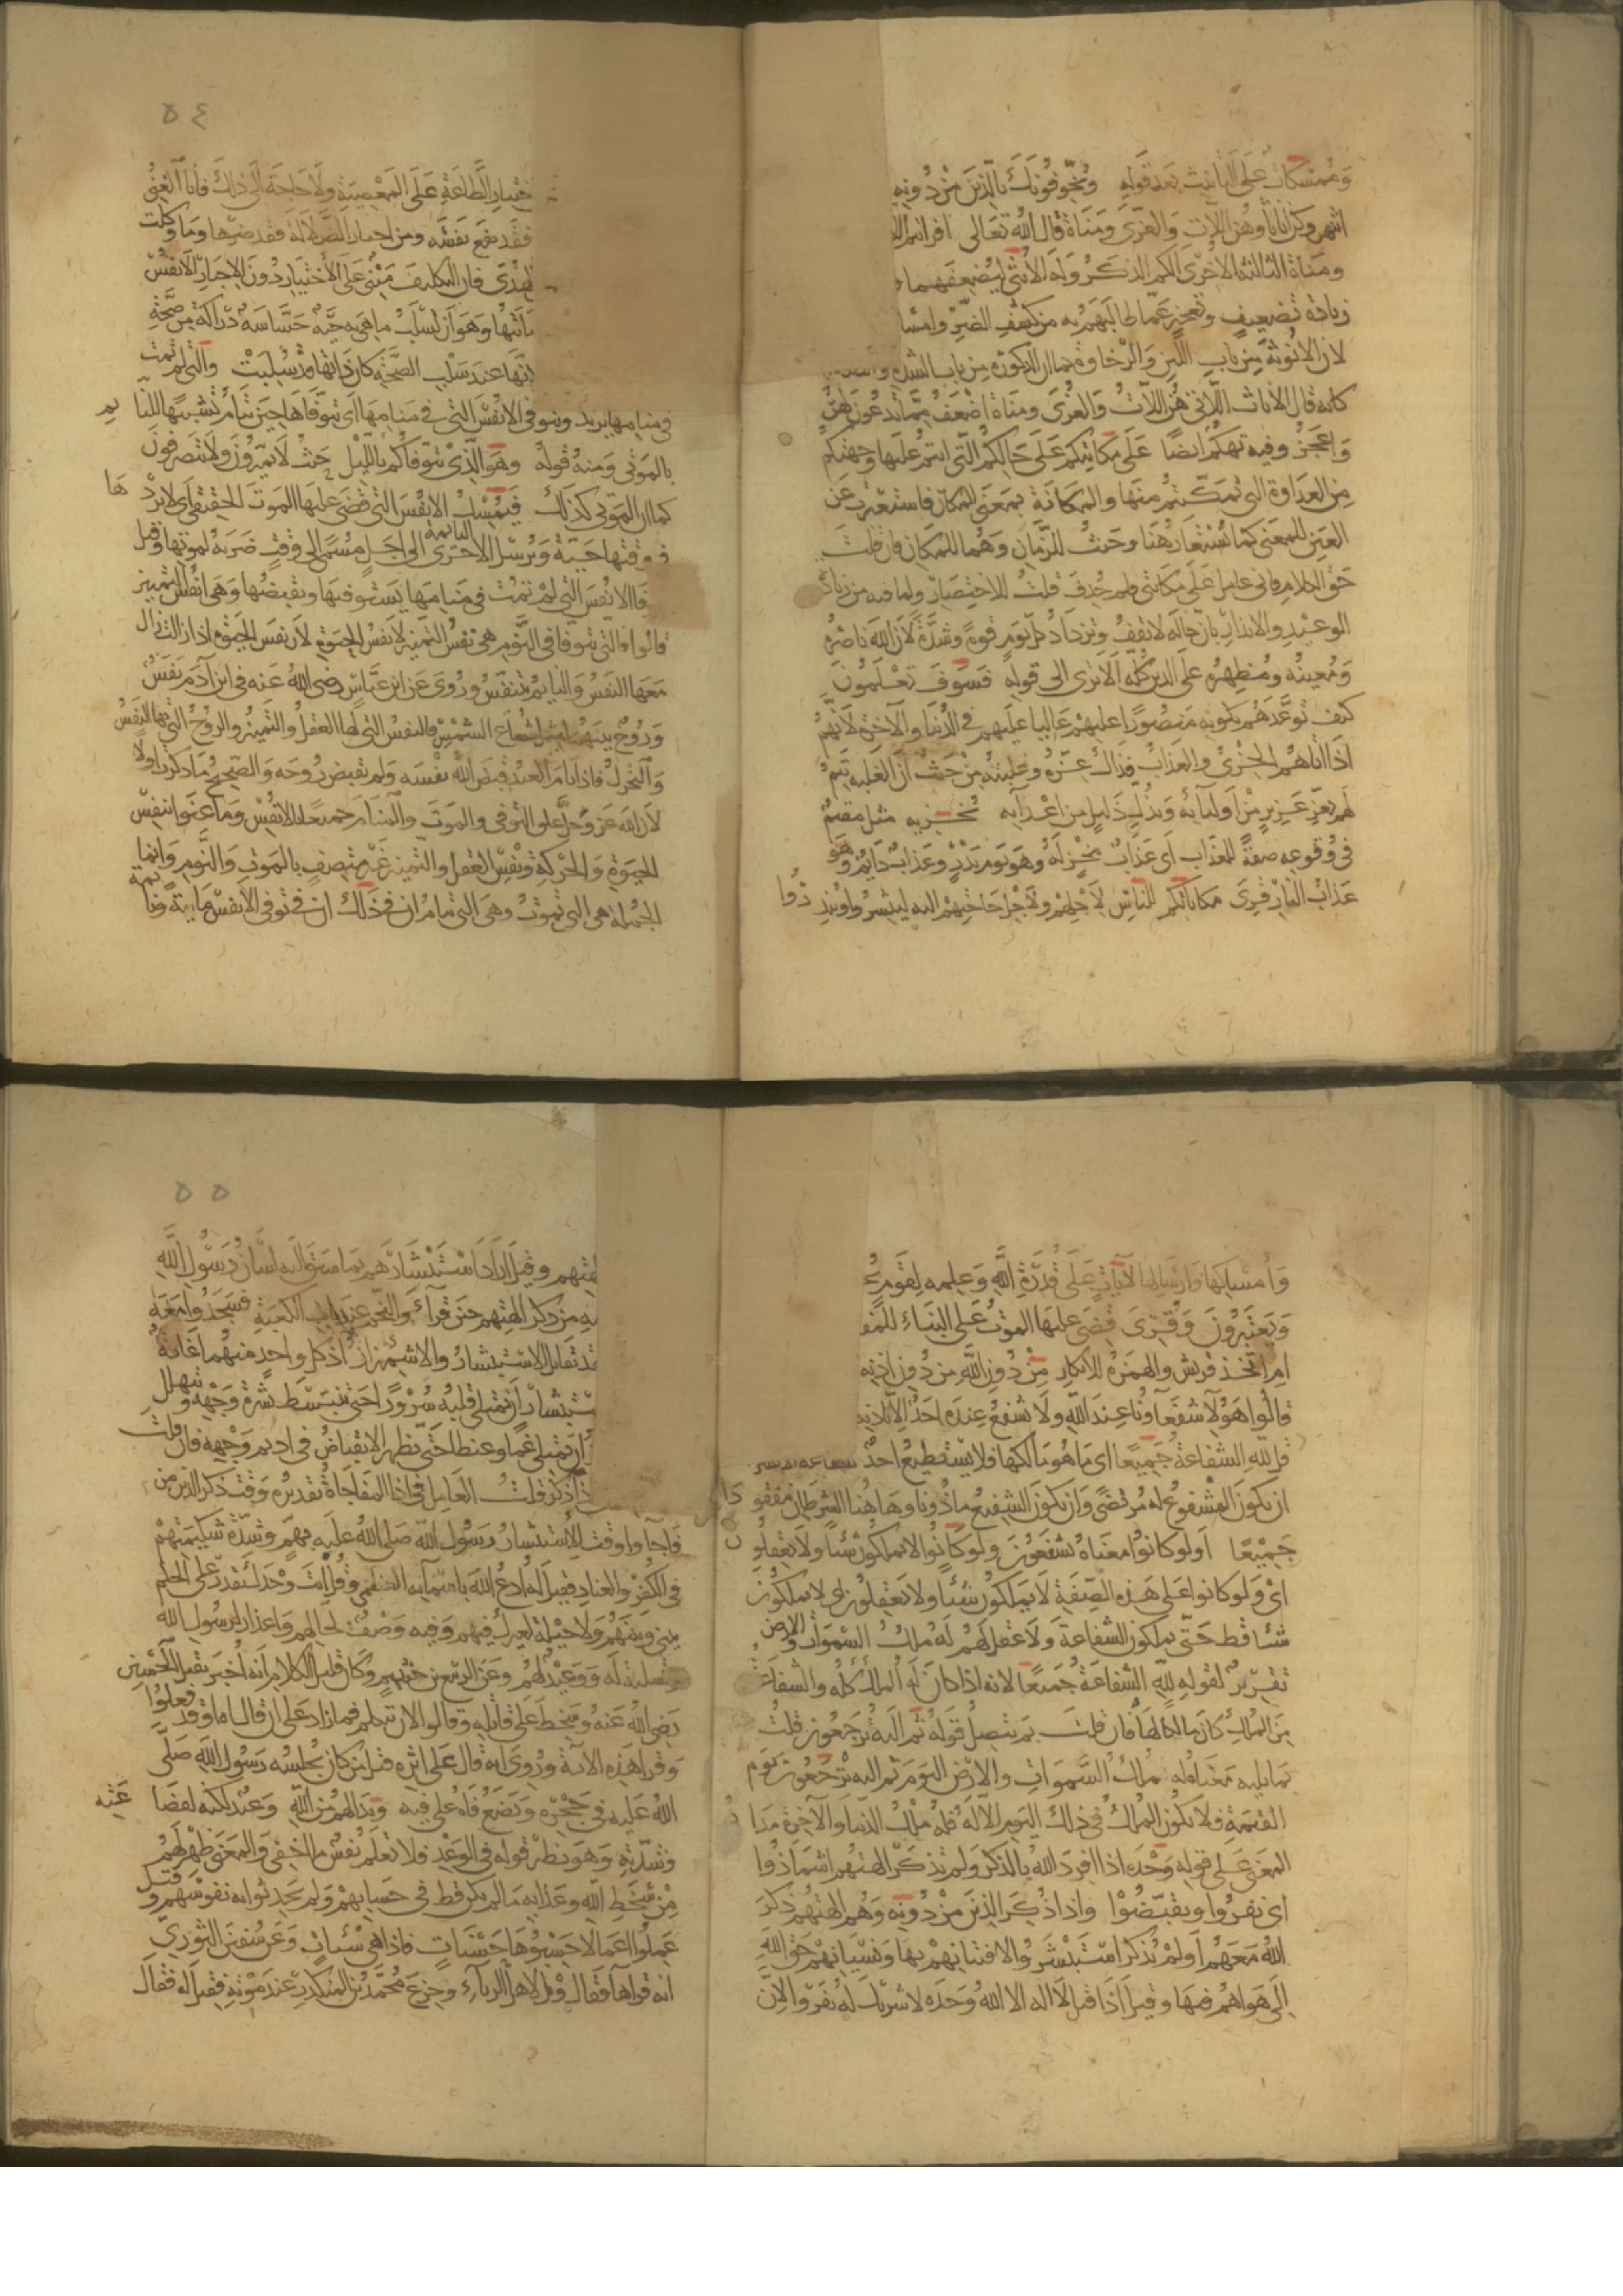 وممسكات على التانيث بعد قوله ويخوفونك بالذين من دونه
انهن وكن اناثا وهن اللات والعزى ومناة قال الله تعالى افرايتم اللا
ومناة الثالثة الاخرى الكم الذكر وله الانثى ليضعفهما
زيادة تضعيف وتعجيز عما طالبهم به من كشف الضر وامسا
لان الانوثة من باب اللين والرخاوة كما ان الذكورة من باب الشدة
كانه قال الاناث اللاتي هن اللات والعزى ومناة اضعف مما تدعون لهن
واعجز وفيه تهكم ايضا على مكانتكم على حالكم التي انتم عليها وجهتكم
من العداوة التي تمكنتم منها والمكانة بمعنى المكان فاستعيرت عن
العين للمعنى كما يستعار هنا وحيث للزمان وهما للمكان فان قلت
حق الكلام فاني عامل على مكانتي فلم حذف قلت للاختصار ولما فيه من زيادة
الوعيد والانذار بان حاله لا تقف وتزداد كل يوم قوة وشدة لان الله ناصره
ومعينه ومظهره على الدين كله الا ترى الى قوله فسوف تعلمون
كيف توعدهم بكونه منصورا عليهم غالبا عليهم في الدنيا والاخرة لانهم
اذا اتاهم الخزي والعذاب فذاك عزه وغلبته من حيث ان الغلبة تتم
لهم بعز عزيز من اوليائه وبذل ذليل من اعدائه يخزيه مثل مقيم
في وقوعه صفة للعذاب اي عذاب مخز له وهو يوم بدر وعذاب دايم وهو
عذاب النار قرئ مكاناتكم للناس لاجلهم ولاجل حاجتهم اليه ليبشروا وينذروا
٥٤
ختيار الطاعة على المعصية ولا حاجة الى ذلك فانا الغني
فقد نفع نفسه ومن اختار الضلالة فقد ضرها وما وكلت
الهدى فان التكليف مبني على الاختيار دون الاجبار الانفس
تها وهو ان تسلب ما هي به حية حساسة دراكة من صحة
انها عند سلب الصحة كان ذاتها قد سلبت والتي لم تمت
في منامها يريد ويتوفى الانفس التي في منامها اي يتوفاها حين تنام تشبيها للنائم
بالموتى ومنه قوله وهو الذي يتوفاكم بالليل حيث لا يميزون ولا يتصرفون
كما ان الموتى كذلك فيمسك الانفس التي قضى عليها الموت الحقيقي اي لا يردها
في وقتها حية ويرسل الاخرى النائمة الى اجل مسمى الى وقت ضربه لموتها وقيل
فا الانفس التي لم تمت في منامها يستوفيها ويقبضها وهي انفس التمييز
قالوا فالتي تتوفا في النوم هي نفس التمييز لا نفس الحيوة لان نفس الحيوة اذا زالت زال
معها النفس والنايم يتنفس وروى عن ابن عباس رضي الله عنه في ابن آدم نفس
وروح بينهما مثل شعاع الشمس فالنفس التي لها العقل والتمييز والروح التي بها النفس
والتحرك فاذا نام العبد قبض الله نفسه ولم يقبض روحه والصحيح ما ذكرت اولا
لان الله عز وجل علق التوفي والموت والمنام جميعا بالانفس وما عنوا بنفس
الحيوة والحركة ونفس العقل والتمييز غير متصف بالموت والنوم وانما
الجملة هي التي تموت وهي التي تنام ان في ذلك ان في توفي الانفس مايتة ونائمة
وامساكها وارسالها لآيات على قدرة الله وعلمه لقوم يتـ
ويعتبرون وقرئ قضي عليها الموت على البناء للمفـ
ام اتخذ قريش والهمزة للانكار من دون الله من دون اذنه
قالوا هؤلاء شفعاؤنا عند الله ولا يشفع عنده احد الا باذنه
قل لله الشفاعة جميعا اي ما هو مالكها فلا يستطيع احد
ان يكون المشفوع له مرتضى وان يكون الشفيع ماذونا وهاهنا الشرطان مفقودان
جميعا اولو كانوا معناه يشفعون ولو كانوا لا يملكون شيئا ولا يعقلون
اي ولو كانوا على هذه الصفة لا يملكون شيئا ولا يعقلون اي لا يملكون
شيئا قط حتى يملكون الشفاعة ولا عقل لهم له ملك السموات والارض
تقرير لقوله لله الشفاعة جميعا لانه اذا كان له الملك كله والشفاعة
من الملك كان مالكا لها فان قلت بم يتصل قوله ثم اليه ترجعون قلت
بما يليه معناه له ملك السموات والارض اليوم ثم اليه ترجعون يوم
القيمة فلا يكون الملك في ذلك اليوم الا له فله ملك الدنيا والآخرة مدار
المعنى على قوله وحده اذا افرد الله بالذكر ولم تذكر الهتهم اشمازوا
اي نفروا وتقبضوا واذا ذكر الذين من دونه وهم الهتهم ذكر
الله معهم اولم يذكر استبشروا لافتتانهم بها ونسيانهم حق الله
الى هواهم فيها وقيل اذا قيل لا اله الا الله وحده لا شريك له نفروا لان
٥٥
لهتهم وقيل اراد استبشارهم بما سبق اليه لسان رسول الله
يه من ذكر الهتهم حين قرأ والنجم عند الكعبة فسجدوا معه
قد تقابل الاستبشار والاشمئزاز اذ كل واحد منهما غاية
ستبشار ان يمتلى قلبه سرورا حتى تنبسط بشرة وجهه وتهلل
ان يمتلى غما وغيظا حتى يظهر الانقباض في اديم وجهه فان قلت
ذا ذكر قلت العامل في اذا المفاجاة تقديره وقت ذكر الذين من
فاجاوا وقت الاستبشار رسول الله صلى الله عليه بهم وشدة شكيمتهم
في الكفر والعناد فقيل له ادع الله باسمايه العظمى وقل انت وحدك تقدر على الحكم
بيني وبينهم ولا حيلة لغيرك فيهم وفيه وصف لحالهم واعذار لرسول الله
وتسلية له ووعيد لهم وعن الربيع بن خثيم وكان قليل الكلام انه اخبر بقتل الحسين
رضي الله عنه وسخط على قاتله وقالوا الان يتكلم فما زاد على ان قال اه او قد فعلوا
وقرا هذه الاية وروى انه قال على اثره قتل من كان يجلسه رسول الله صلى
الله عليه في حجره ويضع فاه على فيه وبدا لهم من الله وعيد لكنه لفظاعته
وشدته وهو نظير قوله في الوعد فلا تعلم نفس ما اخفي والمعنى ظهر لهم
من سخط الله وعذابه ما لم يكن قط في حسابهم ولم يحدثوا به نفوسهم وقيل
عملوا اعمالا حسبوها حسنات فاذا هي سيئات وعن سفين الثوري
انه قراها فقال ويل لاهل الرياء وجزع محمد بن المنكدر عند موته فقيل له فقال